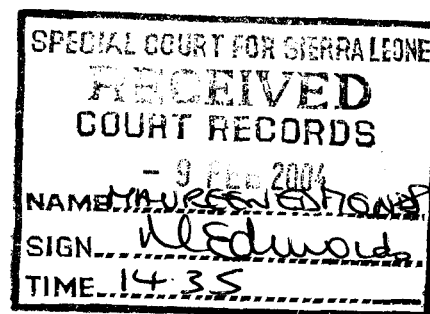 SPECIAL COURT FOR SIERRA LEONE
RECEIVED
COURT RECORDS
- 9 FEB 2004
NAME MAUREEN EDMONDS
SIGN MEdmonds
TIME 14.35